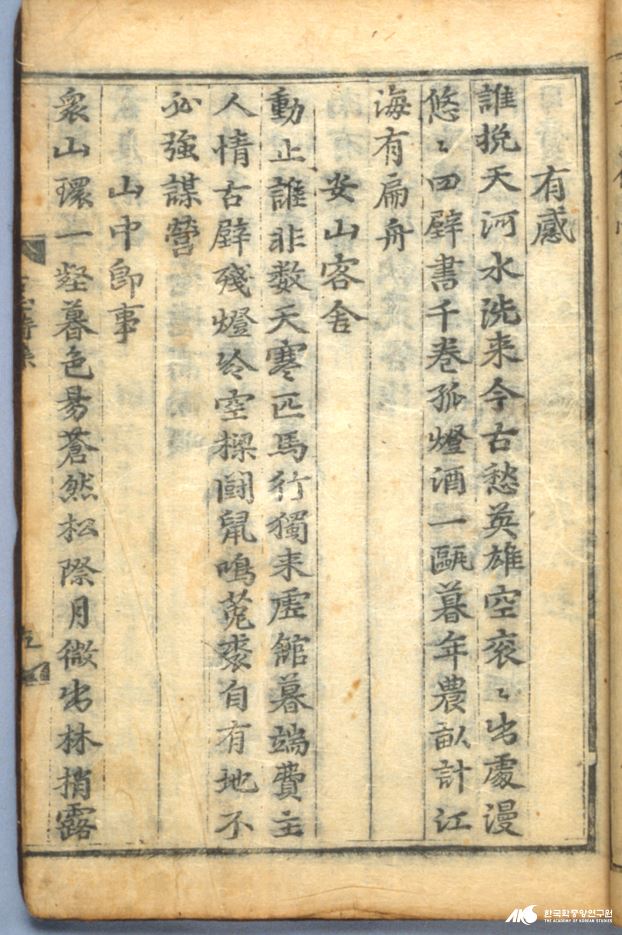 有感
誰挽天河水洗来今古愁英雄空衮〻出處漫
悠〻四壁書千卷孤燈酒一甌暮年農畝計江
海有扁舟
安山客舍
動止誰非数天寒匹馬行獨来虛館暮端費主
人情古壁殘燈冷空樑鬪鼠鳴菟裘自有地不
必強謀營
山中即事
衆山環一壑暮色易蒼然松際月微出林捎露
한국학중앙연구원
THE ACADEMY OF KOREAN STUDIES